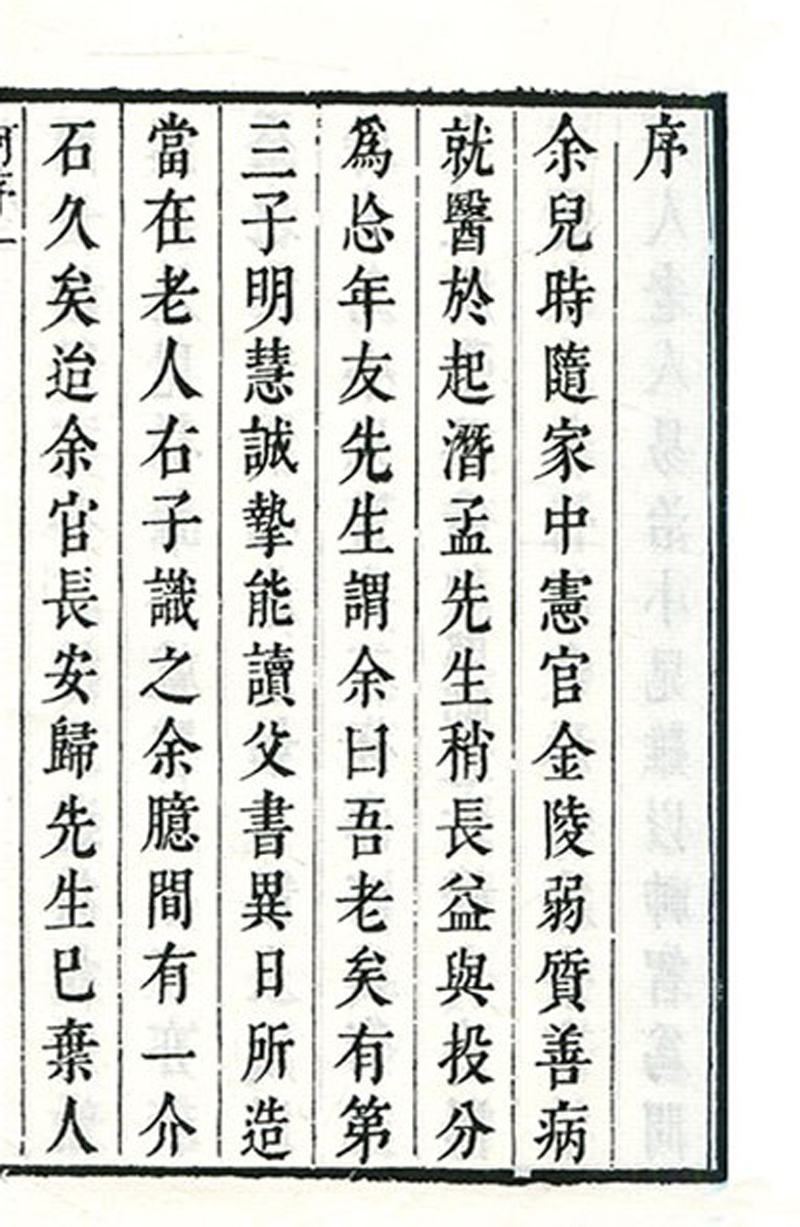 序
余兒時隨家中憲官金陵弱質善病
就醫於起潛孟先生稍長益與投分
爲忩年友先生謂余曰吾老矣有第
三子明慧誠摯能讀父書異日所造
當在老人右子識之余臆間有一介
石久矣迨余官長安歸先生已棄人